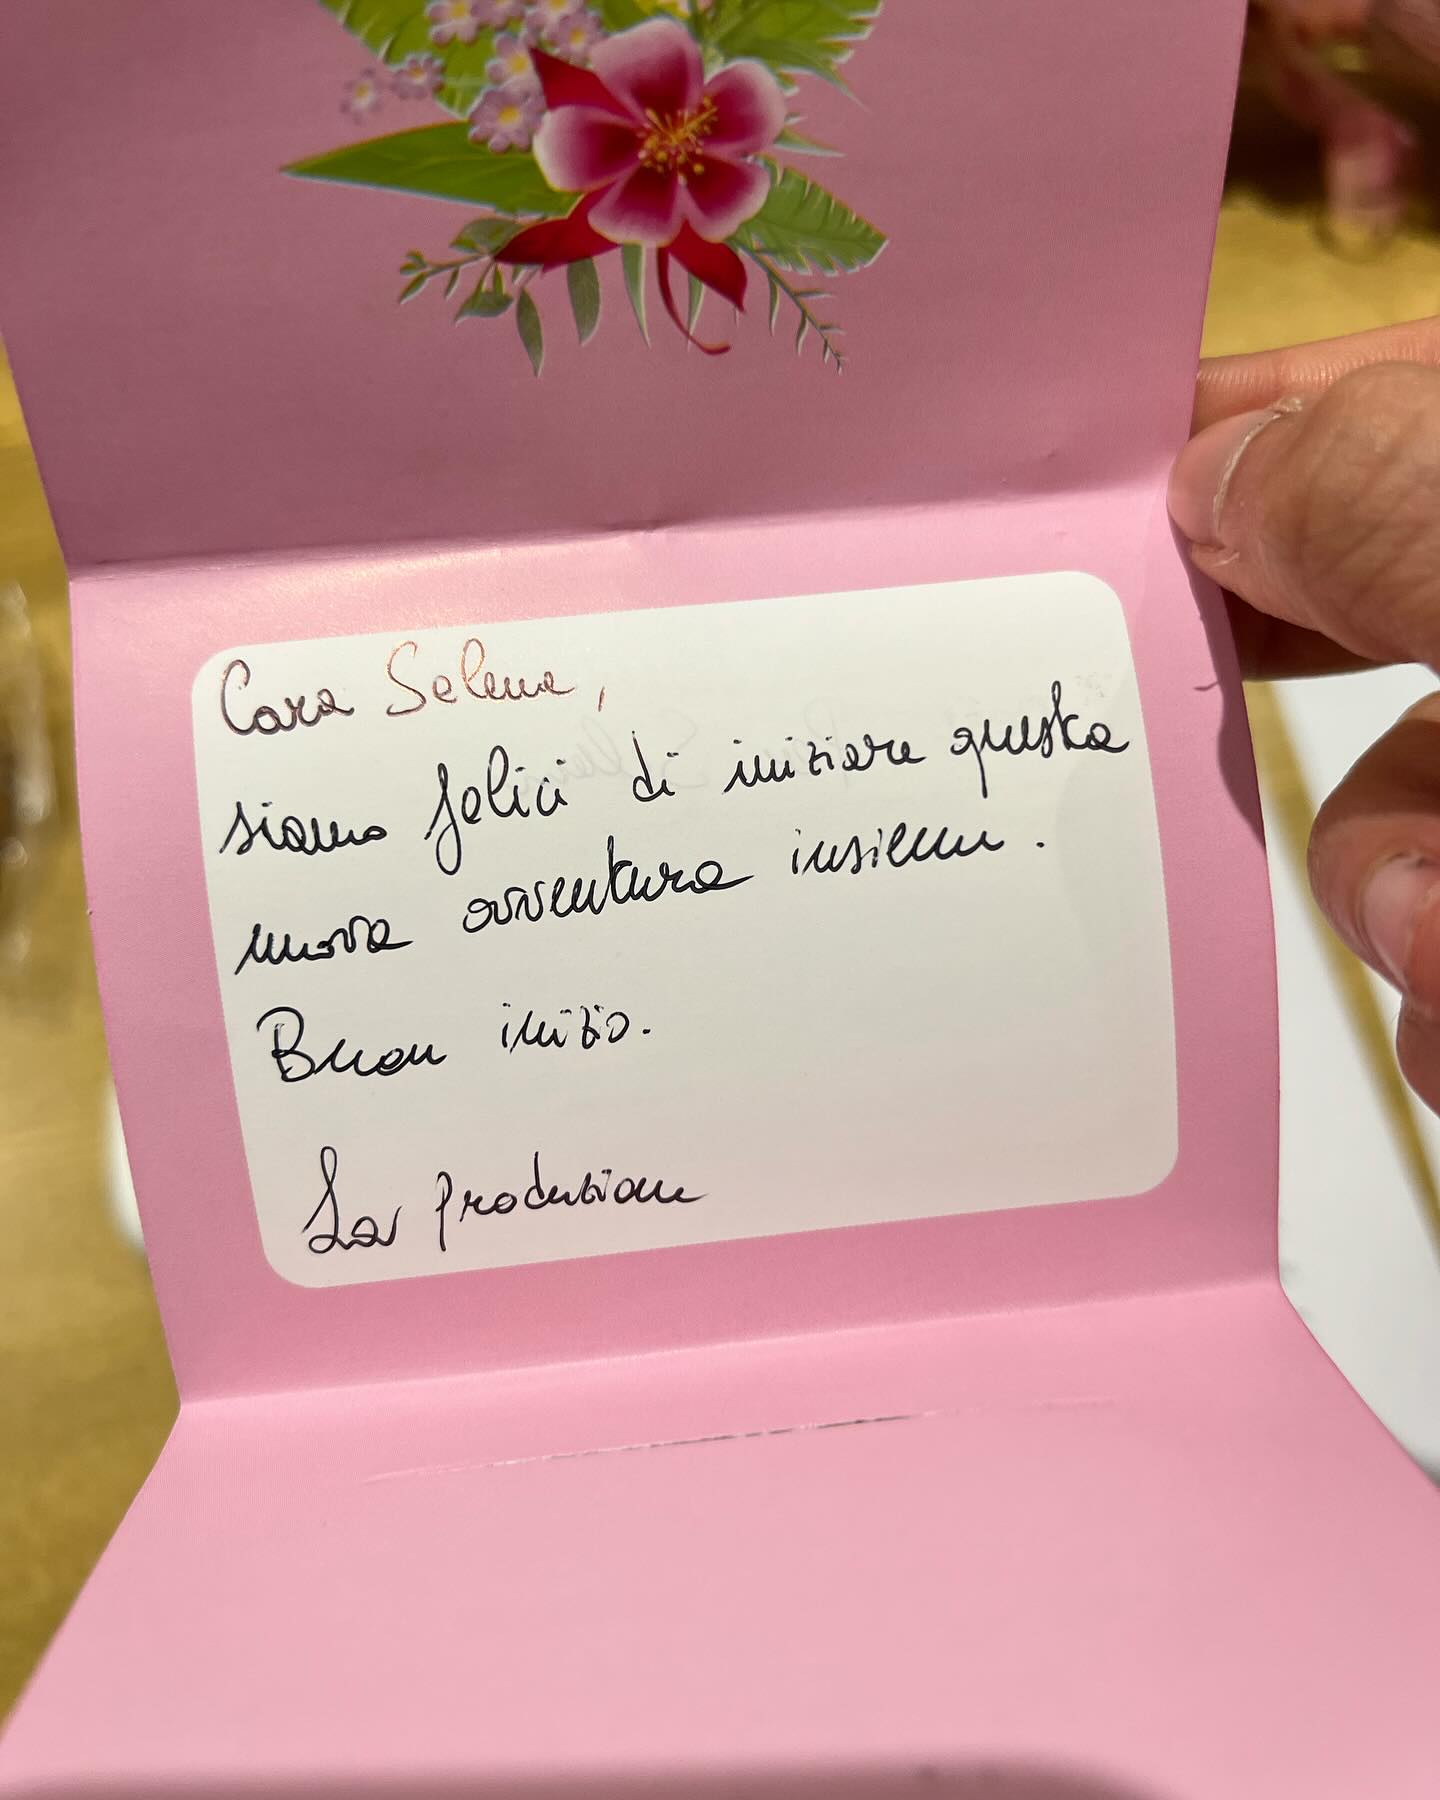 Cara Selene,
siamo felici di iniziare questa
nuova avventura insieme.
Buon inizio.
La produzione